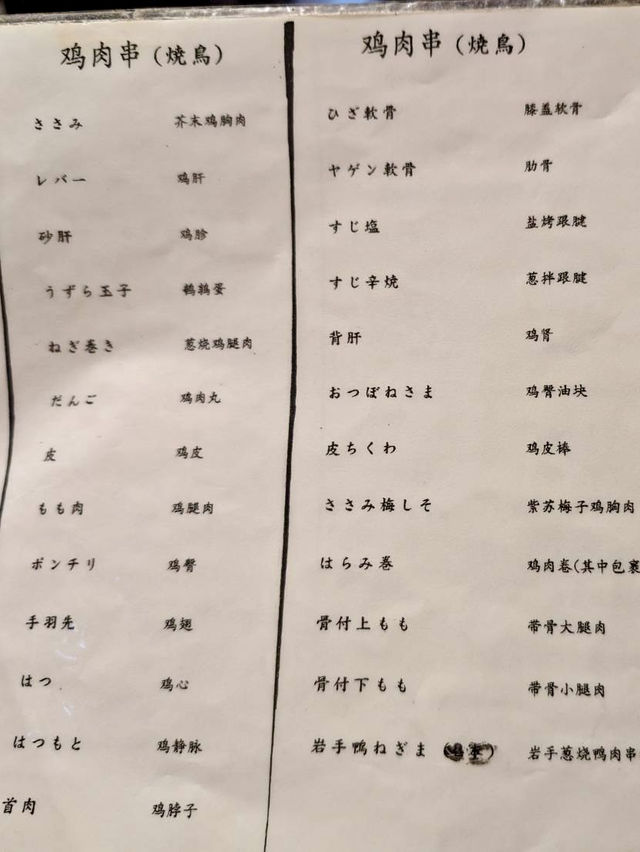 鸡肉串（焼鳥）
ささみ 芥末鸡胸肉
レバー 鸡肝
砂肝 鸡胗
うずら玉子 鹌鹑蛋
ねぎ巻き 葱烧鸡腿肉
だんご 鸡肉丸
皮 鸡皮
もも肉 鸡腿肉
ボンチリ 鸡臀
手羽先 鸡翅
はつ 鸡心
はつもと 鸡静脉
首肉 鸡脖子
鸡肉串（焼鳥）
ひざ軟骨 膝盖软骨
ヤゲン軟骨 肋骨
すじ塩 盐烤跟腱
すじ辛焼 葱拌跟腱
背肝 鸡肾
おつぼねさま 鸡臀油块
皮ちくわ 鸡皮棒
ささみ梅しそ 紫苏梅子鸡胸肉
はらみ巻 鸡肉卷(其中包裹
骨付上もも 带骨大腿肉
骨付下もも 带骨小腿肉
岩手鴨ねぎま 岩手葱烧鸭肉串